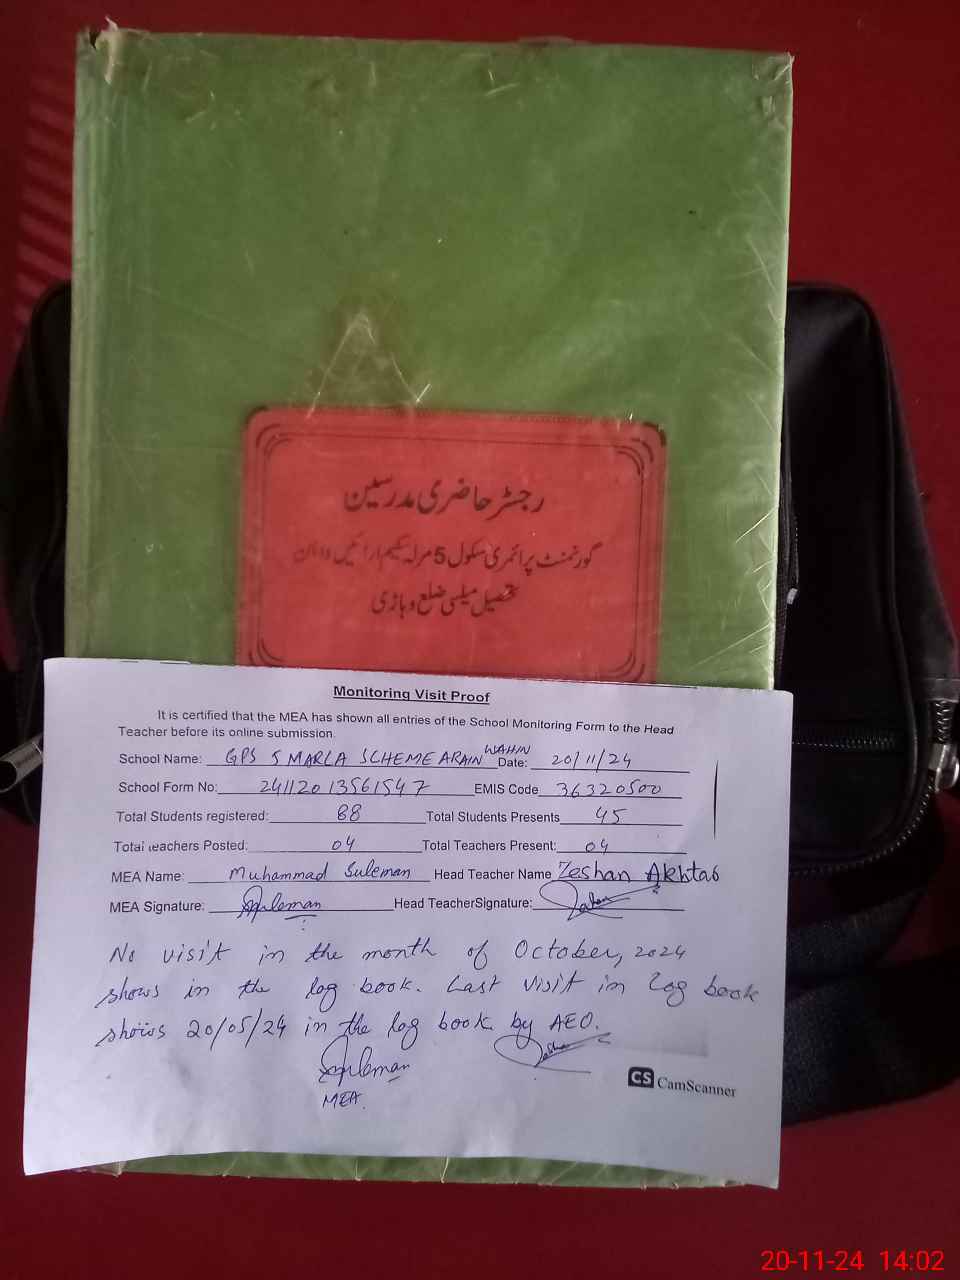 رجسٹر حاضری مدرسین
گورنمنٹ پرائمری سکول 5 مرلہ سکیم ارائیں واہن
تحصیل میلسی ضلع وہاڑی
Monitoring Visit Proof
It is certified that the MEA has shown all entries of the School Monitoring Form to the Head
Teacher before its online submission.
School Name: GPS 5 MARLA SCHEME ARAIN WAHIN Date: 20/11/24
School Form No: 24112013561547 EMIS Code 36320500
Total Students registered: 88 Total Students Presents 45
Total Teachers Posted: 04 Total Teachers Present: 04
MEA Name: Muhammad Suleman Head Teacher Name Zeshan Akhtab
MEA Signature: Suleman Head TeacherSignature:
No visit in the month of October, 2024
shows in the log book. Last visit in log book
shows 20/05/24 in the log book by AEO.
Suleman
MEA.
CS CamScanner
20-11-24 14:02